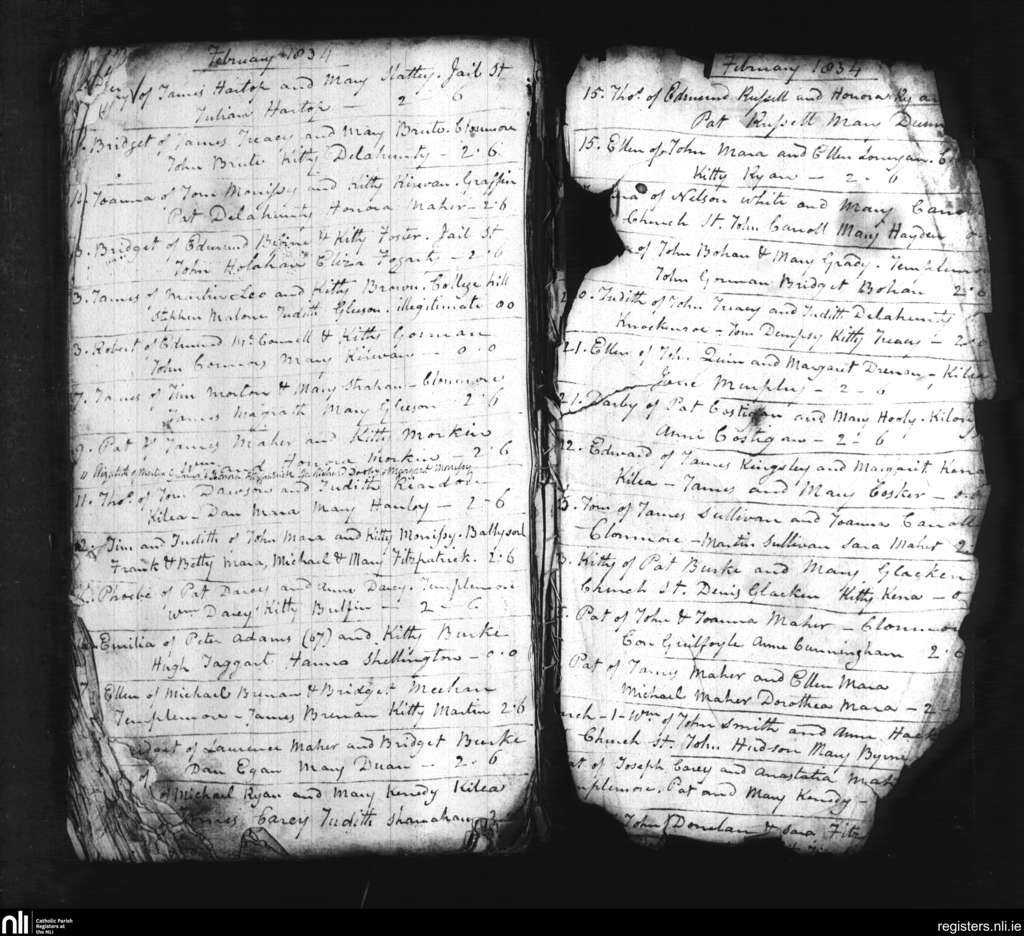 February 1834
of James Hartop and Mary Slattery. Jail St
Juliana Hartop — 2 6
Bridget of James Treacy and Mary Brute. Clonmore
John Brute Kitty Delahunty - 2.6
Joanna of Tom Morrissy and Kitty Kirwan. Graffin
Pat Delahunty Honora Maher - 2.6
3. Bridget of Edmund Byrne & Kitty Foster. Jail St
John Holahan Eliza Fogarty - 2.6
3. James of Martin Leo and Kitty Brown. College hill
Stephen Malone Judith Gleeson. illegitimate 0 0
3. Robert of Edmund McConnell & Kitty Gorman
John Connors Mary Kirwan — 0.0
7. James of Tim Morton & Mary Strahan - Clonmore
James Magrath Mary Gleeson 2.6
9. Pat of James Maher and Kitty Morkin
and Honora Morkin - 2.6
11 Elizabeth of Martin Honora Fitzpatrick Richard Dooley Margaret
11. Thos. of Tom Dawson and Judith Reardon
Kilea - Dan Mara Mary Hanly - 2 - 6
Tim and Judith of John Mara and Kitty Morrissy. Ballysorl
Frank & Betty Mara, Michael & Mary Fitzpatrick. 2.6
Phoebe of Pat Darcy and Anne Darcy. Templemore
Wm Darcy Kitty Bulfin — 2 - 6
Emilia of Peter Adams (67) and Kitty Burke
Hugh Taggart Hanna Shellington - 0.0
Ellen of Michael Brenan & Bridget Meehan
Templemore - James Brenan Kitty Martin 2.6
of Laurence Maher and Bridget Burke
Dan Egan Mary Duan — 2.6
of Michael Ryan and Mary Kenedy Kilea
James Carey Judith Shanahan 2
February 1834
15. Thos. of Edmund Russell and Honora Ryan
Pat Russell Mary Dunn
15. Ellen of John Mara and Ellen Lonergan.
Kitty Ryan — 2. 6
of Nelson White and Mary
Church St. John Carroll Mary Hayden
of John Bohan & Mary Grady.
John Gorman Bridget Bohan 2.
Judith of John Treacy and Judith Delahunty
Knockanroe - Tom Dempsy Kitty Treacy - 2.
21. Ellen of John Quin and Margaret Drennan - Kilea
Jane Murphy - 2 - 6
21. Darby of Pat Costigan and Mary Hooly.
Anne Costigan — 2. 6
Edward of James Kingsley and Margaret
Kilea - James and Mary Cosker - 0.
Tom of James Sullivan and Joanna Carroll
Clonmore - Martin Sullivan Sara Maher 2
Kitty of Pat Burke and Mary Glacken
Church St. Denis Glacken Kitty Kena - 0
Pat of John & Joanna Maher - Clonmore
Con Guilfoyle Anne Cunningham 2.
Pat of James Maher and Ellen Mara
Michael Maher Dorothea Mara - 2
1 - Wm. of John Smith and Anne
Church St. John Hudson Mary Byrne
of Joseph Carey and Anastatia
Pat and Mary Kenedy -
John Donelan & Sara
nli
Catholic Parish
Registers at
the NLI
registers.nli.ie